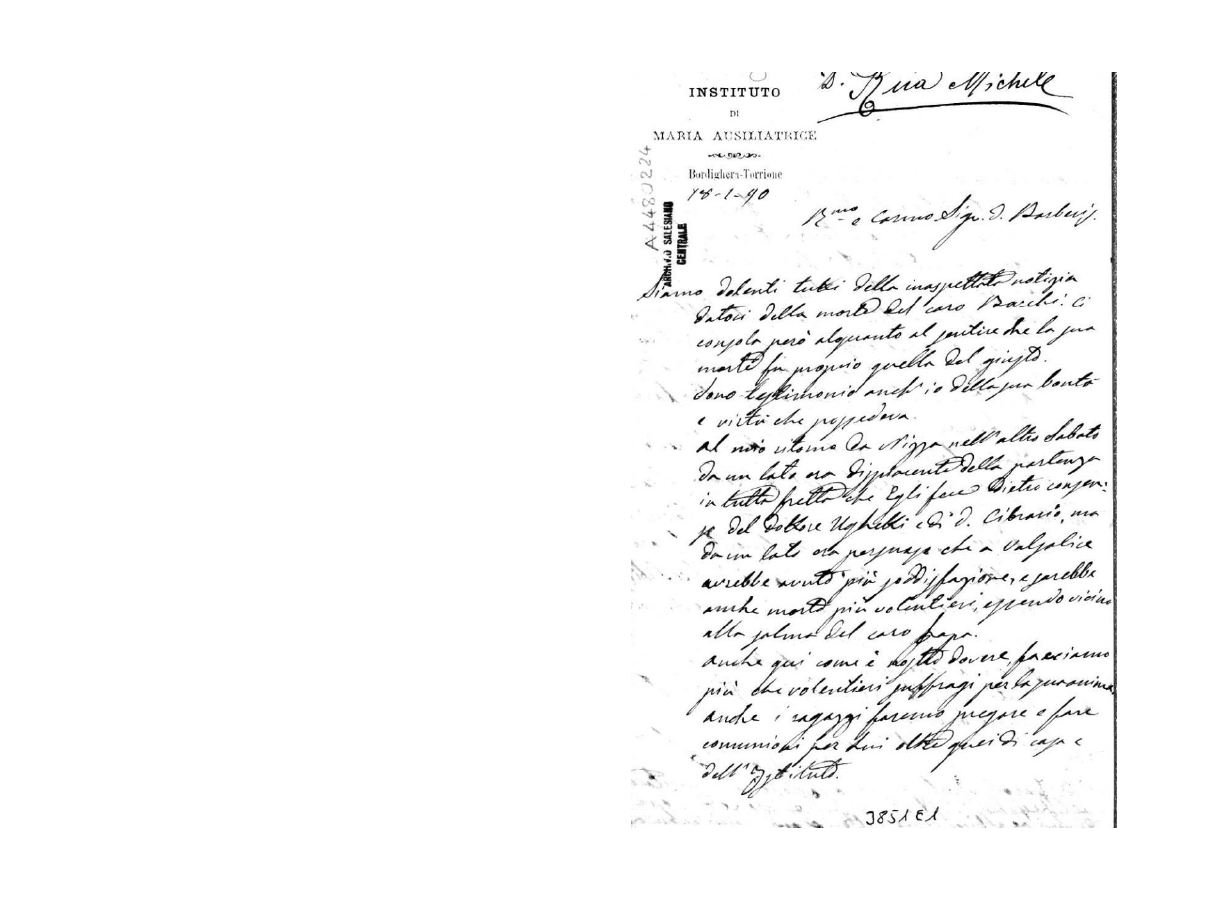 D. Rua Michele
INSTITUTO
DI
MARIA AUSILIATRICE
Bordighera-Torrione
18-1-90
A4480224
ARCHIVIO SALESIANO
CENTRALE
Rmo e Carmo Sigr. D. Barberis.
Siamo dolenti tutti della inaspettata notizia
dataci della morte del caro Bacchi. Ci
consola però alquanto al sentire che la sua
morte fu proprio quella del giusto.
Sono testimonio anch' io della sua bontà
e virtù che possedeva.
Al mio ritorno da Nizza nell' altro Sabato
da un lato era dispiacente della partenza
in tutta fretta che Egli fece dietro consen-
so del dottore Ughetti e di D. Cibrario, ma
da un lato era persuaso che a Valsalice
avrebbe avuto più soddisfazione, e sarebbe
anche morto più volentieri, essendo vicino
alla salma del caro papà.
Anche qui come è nostro dovere facciamo
più che volentieri suffragi per la sua anima,
anche i ragazzi faremo pregare e fare
comunioni per lui oltre quei di casa e
dell' Istituto.
3851 E1